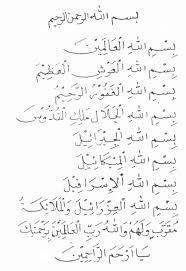 بسم الله الرحمن الرحيم
بِسْمِ اللهِ الْعَالَمِيْنَ
بِسْمِ اللهِ الْعَرْشِ الْعَظِيْمِ
بِسْمِ اللهِ الْغَفُوْرِ الرَّحِيْمِ
بِسْمِ اللهِ الْجَلَالِ مَلِكِ الْقُدُّوْسِ
بِسْمِ اللهِ الْجِبْرَائِيْلَ
بِسْمِ اللهِ الْمِيْكَائِيْلَ
بِسْمِ اللهِ الْإِسْرَافِيْلَ
بِسْمِ اللهِ الْعِزْرَائِيْلَ وَالْمَلَائِكَةِ
وَاللهُ رَبُّ الْعَالَمِيْنَ بِرَحْمَتِكَ
يَا أَرْحَمَ الرَّاحِمِيْنَ